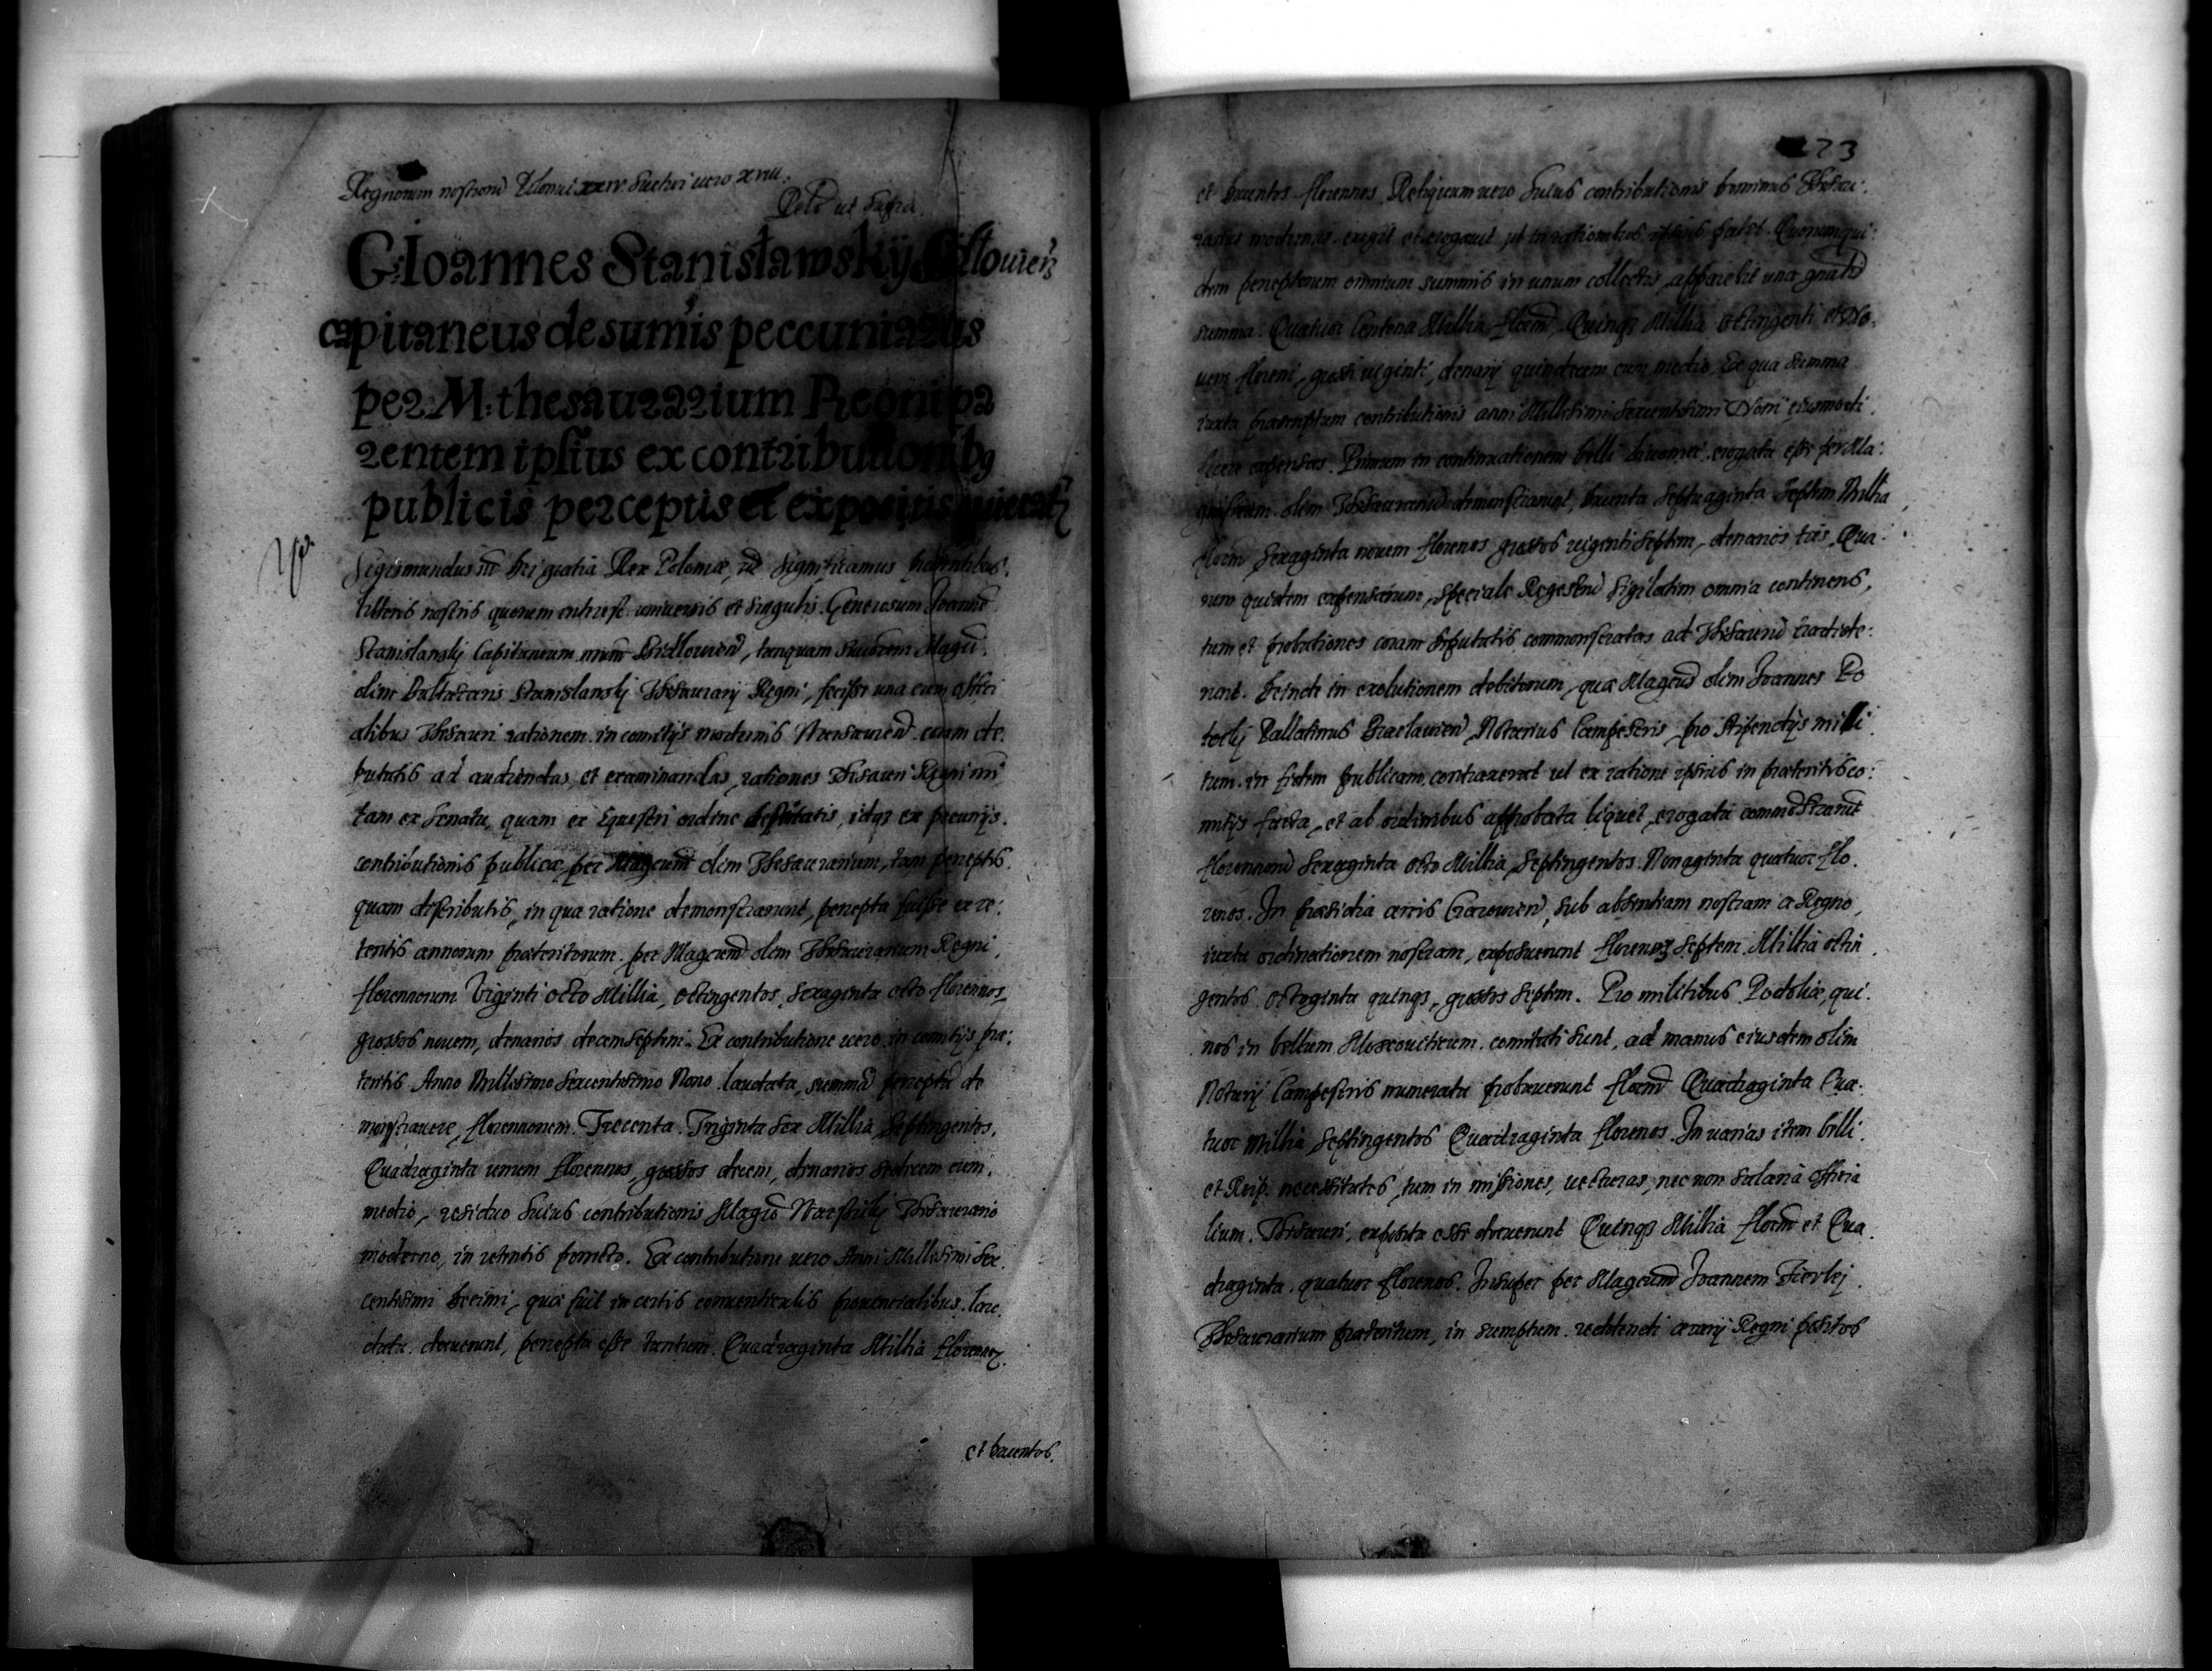 Regnorum nostrorũ Poloniæ xxiv. Suetiæ vero xviii.
Rela ut supra.
G: Ioannes Stanisławskÿ
capitaneus de sum̃is peccuniariis
per M: thesaurarium Regni pa
rentem ipsius ex contributionibg
publicis perceptis et expositis quietatr
Sigismundus iii Dei gratia Rex Poloniæ, etc Significamus præsentibus.
litteris nostris quorum interest universis et singulis. Generosum Joannē
Stanislawskij Capitaneum nrum̃, tanquam Magci.
olim Baltazaris Stanislawskij Thesaurarij Regni, fecisse una cum offici
alibus Thesauri rationem in comitijs modernis Varsavien̄ coram de
putatis ad audiendas, et examinandas, rationes Thesauri Regni nri
tam ex Senatu, quam ex Equestri ordine deputatis, idqз ex pecunijs.
contributionis publicæ per Magcum̄ olim Thesaurarium, tam perceptis.
quam distributis, in qua ratione demonstrarunt, percepta fuisse ex re:
tentis annorum præteritorum per Magcum̄ olim Thesaurarium Regni,
florennorum Viginti octo Millia, octingentos, sexaginta octo florennos
grossos novem, denarios decem septem. Ex contributione vero in comitijs præ:
teritis Anno Millesimo Sexcentesimo Nono laudata, summā perceptā de
monstravere, florennorum Trecenta Triginta sex Millia Septingentos,
Quadraginta unum florennos, grossos decem, denarios sedecem cum.
medio, residuo huius contributionis Magco Warszickij Thesaurario
moderno, in retentis porrecto. Ex contributione vero Anni Millesimi Sex.
centesimi Decimi, quæ fuit in certis conventiculis provincialibus. lau.
data. docuerunt, percepta esse tantum Quadraginta Millia florenoz
et Ducentos.
223
et Ducentos florennos Reliquam vero huius contributionis Thesau:
rarius modernus exegit et erogavit, ut in rationibus ipsius patet. Quorumqui:
dem perceptorum omnium summis in unum collectis, apparebit una gnalis
summa. Quatuor Centena Millia florñ Quinqз Millia Octingenti et No.
vem floreni, grossi viginti, denarij quindecem cum medio. Ex qua summa
iuxta præscriptum contributionis anni Millesimi Sexcentesimi Noni eiusmodi.
fecere expensas. Primum in continuationem belli Livonici erogata esse per Ma:
gnificum olim Thesaurariū demonstrarunt, Ducenta Septuaginta Septem Millia
florñ Sexaginta novem florenos grossos viginti Septem, denarios tres. Qua
rum quidem expensarum, speciale Regestrū sigilatim omnia continens,
tum et probationes coram deputatis commonstratas ad Thesaurū tradide:
runt. Deinde in exolutionem debitorum, quæ Magcus̄ olim Joannes Po
tockij Pallatinus Braclavien̄, Notarius Campestris, pro stipendijs milli
tum in fidem publicam contraxerat ut ex ratione ipsius in præteritis co:
mitijs facta, et ab ordinibus approbata liquet, erogata commōstrarūt
florennorū Sexaginta octo Millia, Septingentos Nonaginta quatuor flo.
renos. In præsidia arcis Cracovien̄, sub absentiam nostram a Regno,
iuxta ordinationem nostram, exposuerunt florenoз Septem Millia octin
gentos octoginta quinqз, grossos septem. Pro militibus Podoliæ, qui
nos in bellum Moscoviticum comitati sunt, ad manus eiusdem olim
Notarij Campestris numerata probaverunt florñ Quadraginta Qua.
tuor Millia Septingentos Quadraginta florenos. In varias item belli.
et Reip. necessitates, tum in missiones, vecturas, nec non salaria officia
lium. Thesauri, exposita esse docuerunt Quinqз Millia florñ et Qua.
draginta quatuor florenos. Insuper per Magcum̄ Joannem Firlej.
Thesaurarium præteritum, in sumptum redtendi ærarij Regni positos